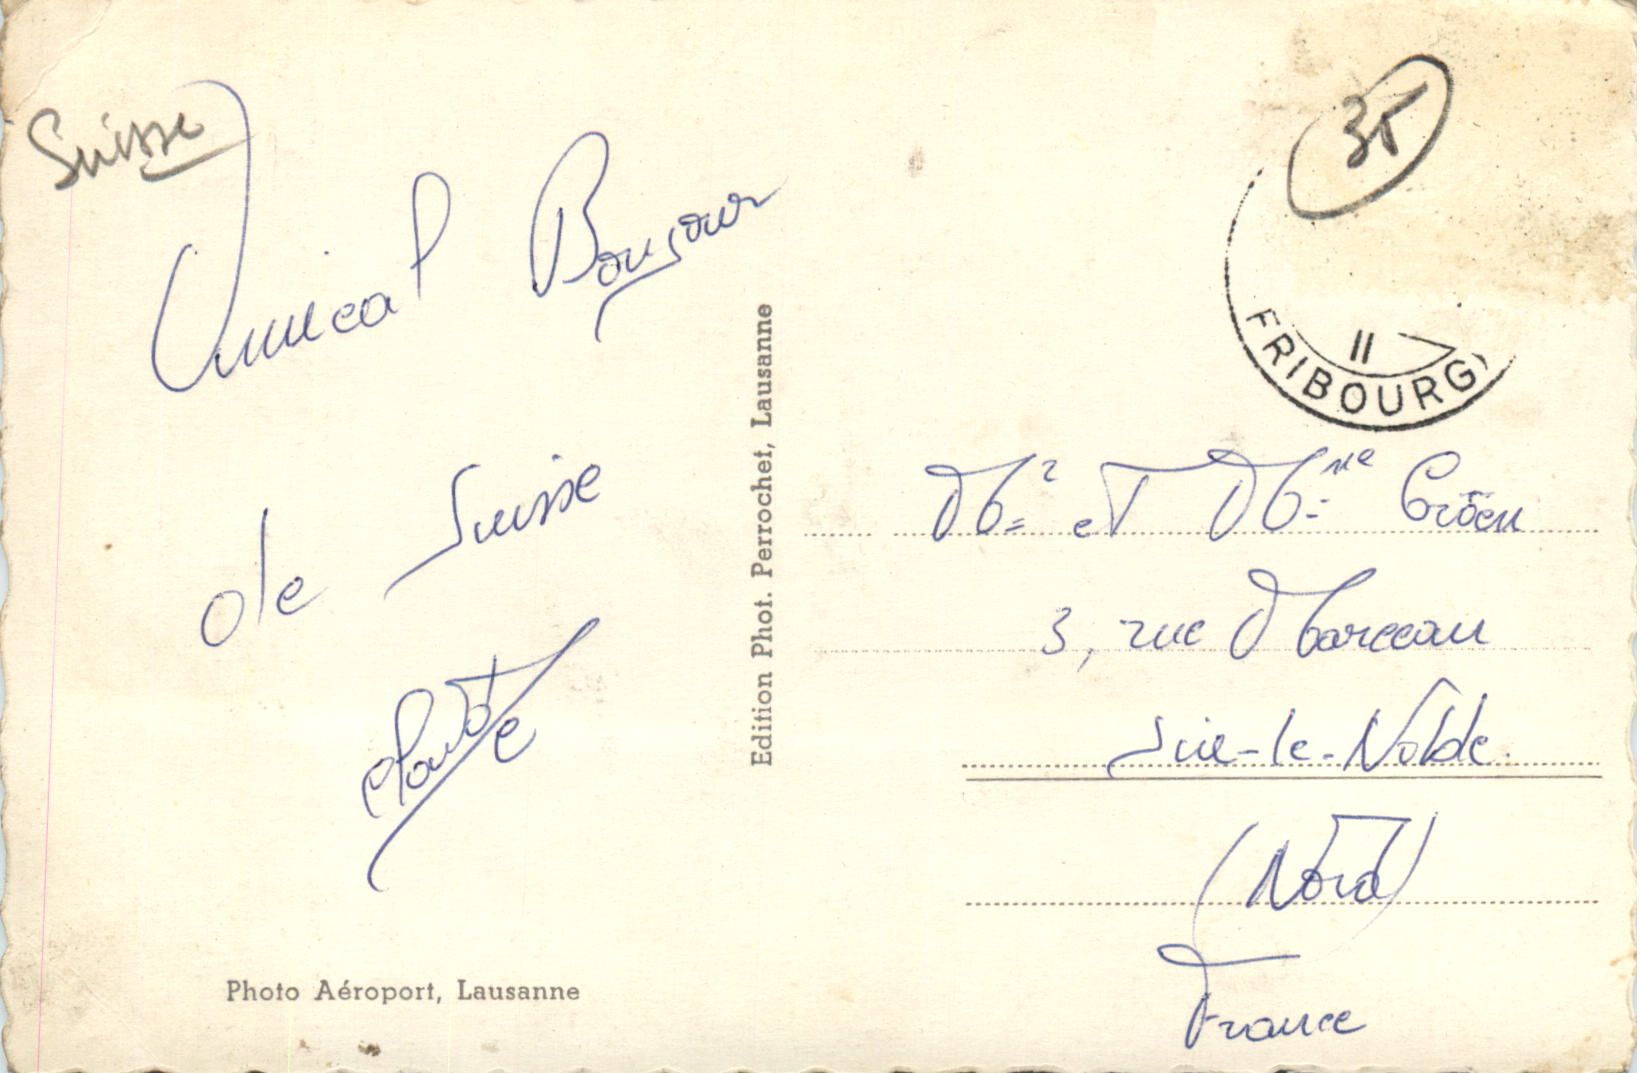 Suisse
Amical Bonjour
de Suisse
Edition Phot. Perrochet, Lausanne
Photo Aéroport, Lausanne
35
II
FRIBOURG
Mr et Mme
3, rue Marceau
Sin-le-Noble
(Nord)
France